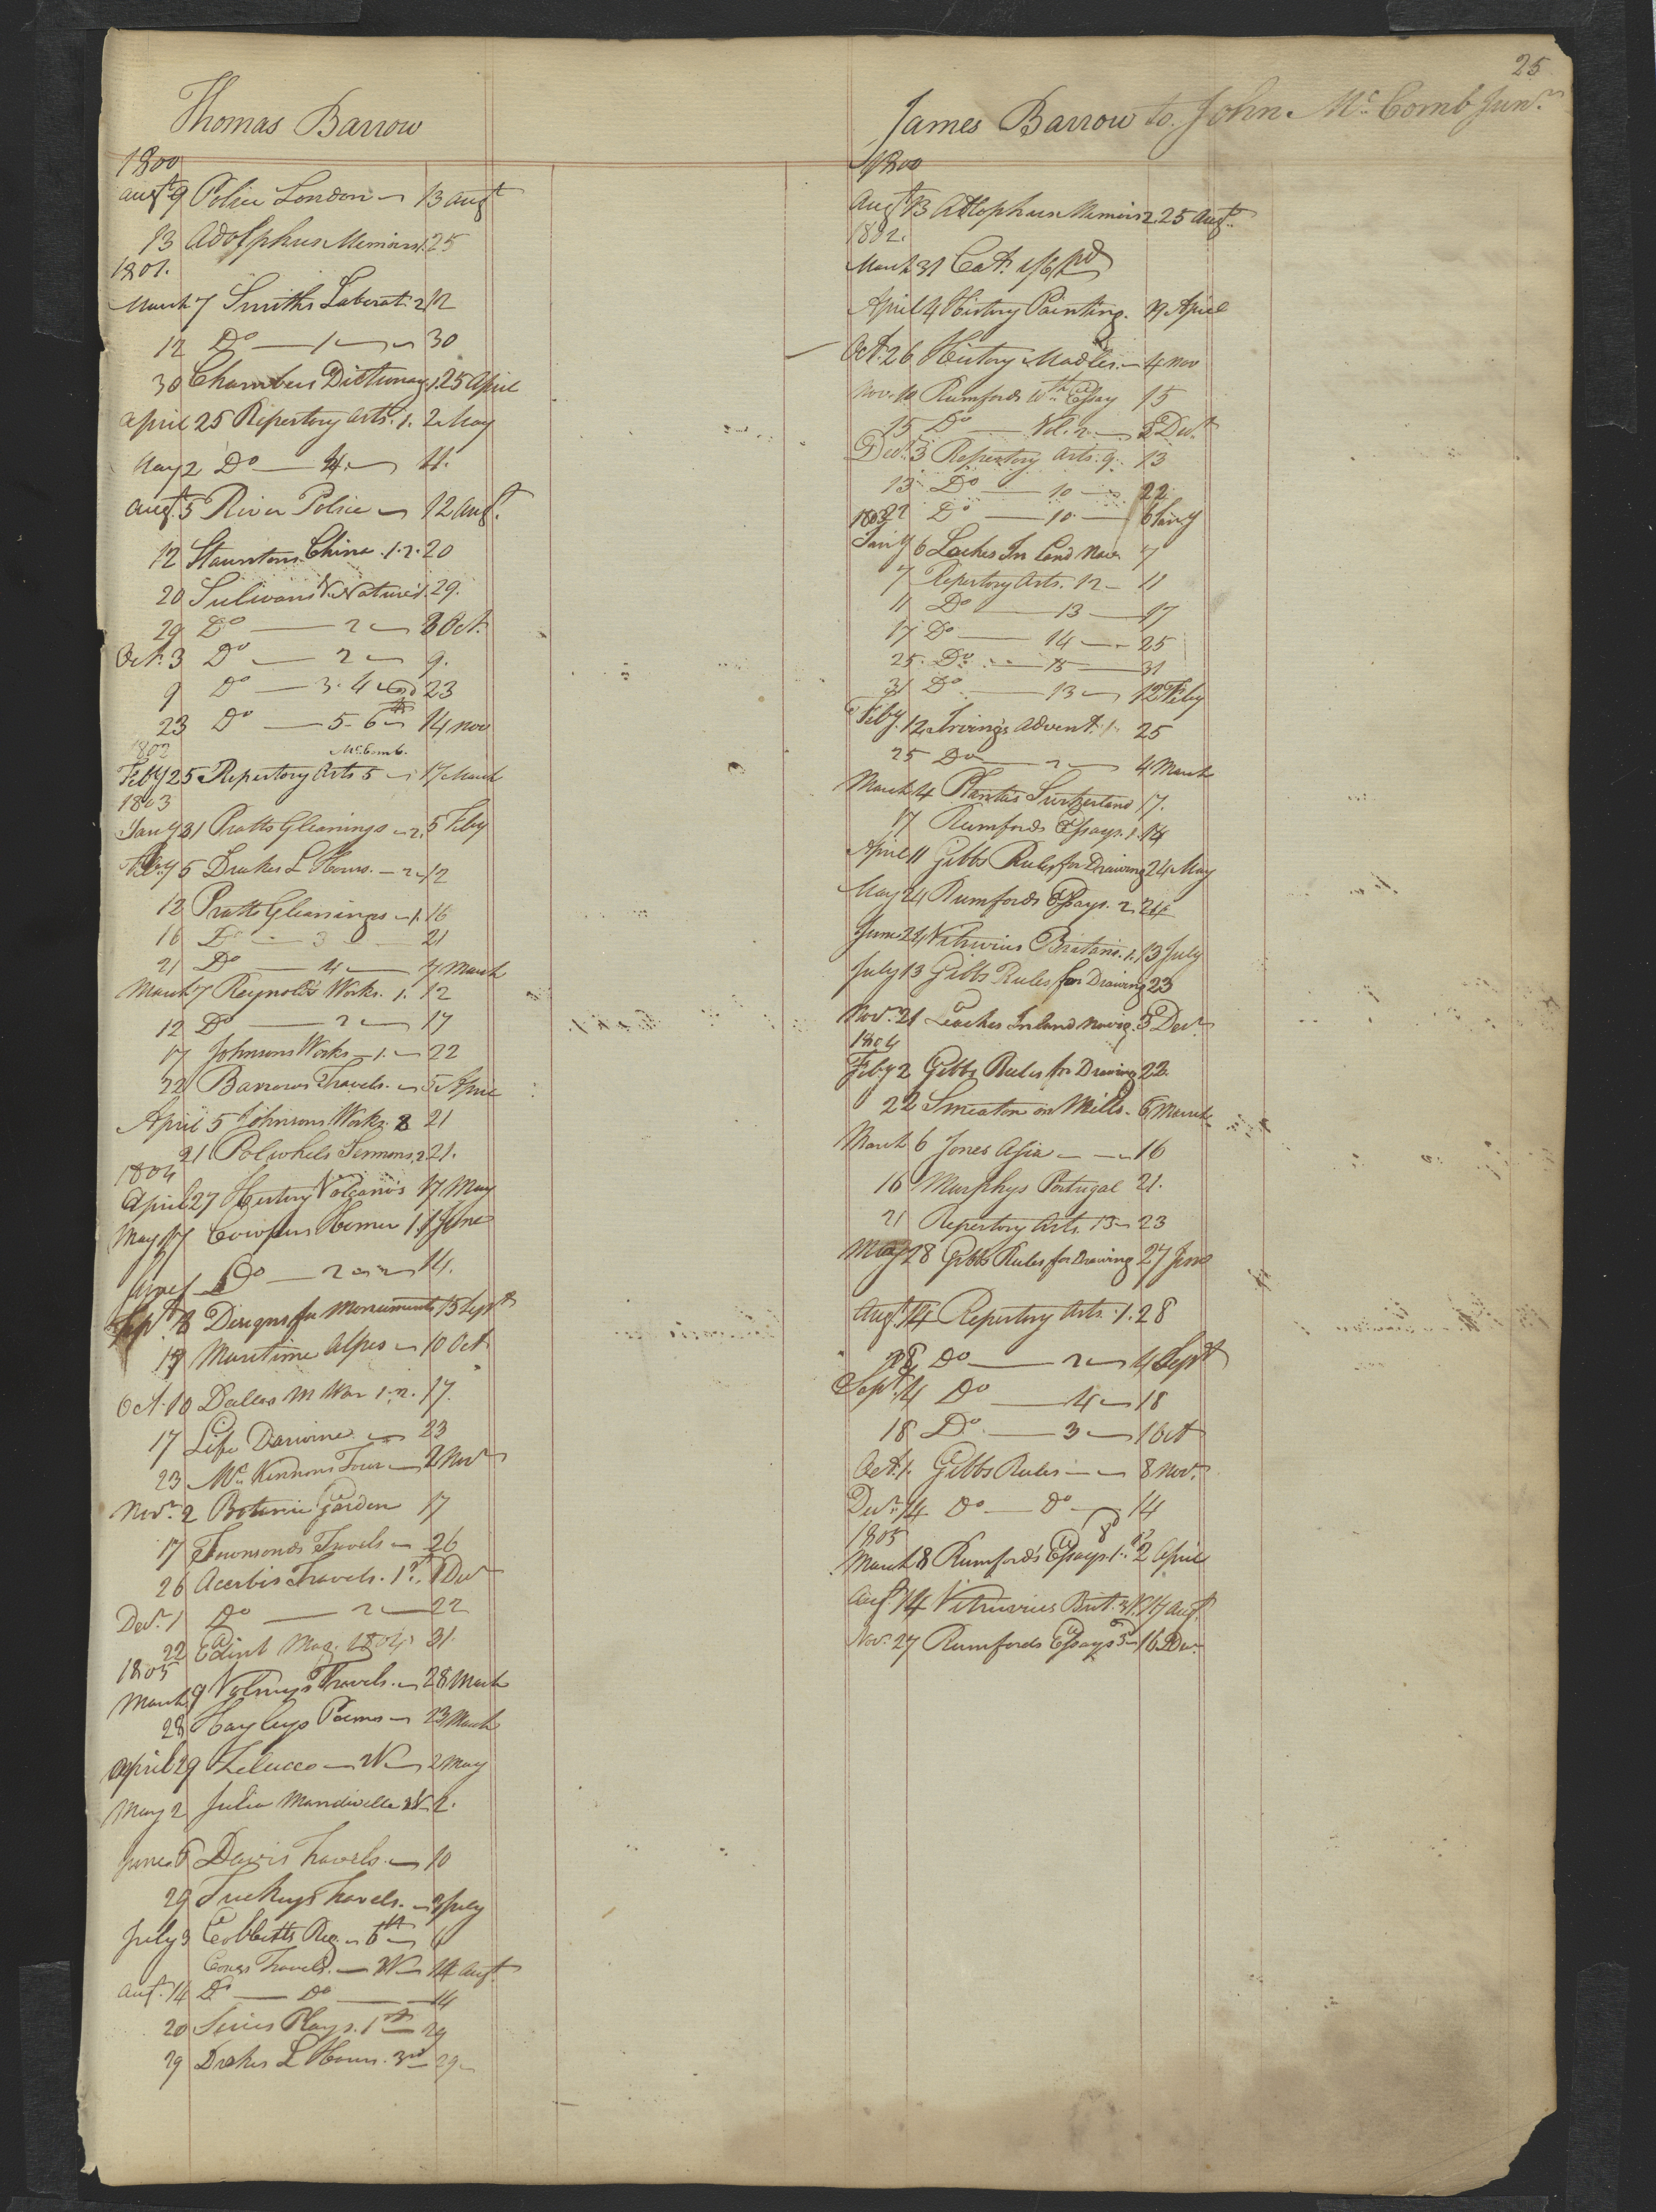 25
Thomas Barrow
1800
Augt 9 Police London 13 Augt
13 Adolphus Memoirs 1. 25
1801.
March 7 Smiths Laborat. 2 12
12 Do 1 30
30 Chambers Dictionary 1. 25 April
April 25 Repertory Arts. 1. 2 May
May 2 Do 4 11.
Augt. 5 River Police 12 Augt.
12 Stauntons China. 1. 2. 20
20 Sulivans V. Nature 1. 29.
29 Do 2 3 Oct.
Oct. 3 Do 2 9.
9 Do 3. 4 23
23 Do 5. 6th 14 Nov
1802 McComb.
Feby 25 Repertory Arts 5 17 March
1803
Jany 31 Pratts Gleanings 2. 5 Feby
Feby 5 Drakes L Hours. 2 12
12 Pratts Gleanings 1. 16
16 Do 3 21
21 Do 4 7 March
March 7 Reynolds Works. 1. 12
12 Do 2 17
17 Johnsons Works 1. 22
22 Barrows Travels. 5 April
April 5 Johnsons Works. 2 21
21 Polwhels Sermons 2 21.
1804
April 27 History Volcano's 17 May
May 17 Cowpers Homer 1. 1 June
June 1 Do 2 14.
Sept 8 Designs for Monuments 15 Sept
19 Maritime Alpes 10 Oct
Oct. 10 Dallas M War 1. 2. 17.
17 Life Darwine 23
23 McKinnons Tour 2 Novr
Novr. 2 Botanic Garden 17
17 Townsends Travels 26
26 Acerbis Travels. 1st. 1 Decr
Decr. 1 Do 2 22
22 Edinb Mag. 1804 31.
1805
March 9 Volneys Travels. 28 March
28 Hayleys Poems 23 March
April 29 Zelucco 2V 2 May
May 2 Julia Mandeville 2V 2.
June 6 Davis Travels. 10
29 Tuckeys Travels. 3 July
July 3 Cobbetts Reg. 6th 6
Coxes Travels. 2V 14 Augt
Augt. 14 Do Do 14
20 Series Plays. 1st 29
29 Drakes L Hours. 3rd 29
James Barrow to John McComb Junr.
1800
Augt 13 Adolphus Memoirs 2 25 Augt.
1802.
March 31 Cat. 1/6 pd
April 4 History Painting. 17 April
Oct. 26 History Madles. 4 Nov
Nov. 10 Rumfords 10th Essay 15
15 Do Vol. 2. 3 Decr
Decr. 3 Repertory Arts. 9. 13
13 Do 10 22
1803 22 Do 10 6 Jany
Jany 6 Leaches In land Nav. 7
7 Repertory Arts. 12 11
11 Do 13 17
17 Do 14 25
25. Do 15 31
31 Do 13 12 Feby
Feby. 12 Irvings Advent. 1. 25
25 Do 2 4 March
March 4 Plantas Switzerland 17.
17 Rumfords Essays. 1. 14
April 11 Gibbs Rules for Drawing 24 May
May 24 Rumfords Essays. 2. 24
June 24 Vitruvius Britanic. 1. 13 July
July 13 Gibbs Rules for Drawing 23
Novr. 21 Leaches Inland Navig. 3 Decr
1804
Feby 2 Gibbs Rules for Drawing 22.
22 Smeaton on Mills. 6 March
March 6 Jones Asia 16
16 Murphys Portugal 21.
21 Repertory Arts. 13 23
May 28 Gibbs Rules for Drawing 27 June
Augt. 14 Repertory Arts. 1. 28
28 Do 2 4 Sept
Sept. 4 Do 4 18
18 Do 3 1 Oct
Oct. 1. Gibbs Rules 8 Nov.
Decr. 14 Do Do 14
1805
March 8 Rumford's Essays. 1. 2 April
Augt 14 Vitruvius Brit. 3V. 17 Augt.
Nov. 27 Rumfords Essays 3d 16 Decr.